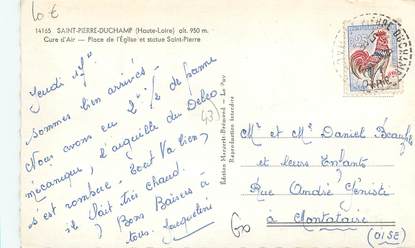 10 €
14165 SAINT-PIERRE-DUCHAMP (Haute-Loire) alt. 950 m.
Cure d'Air — Place de l'Église et statue Saint-Pierre
Jeudi
Sommes bien arrivés -
Nous avons eu 2h 1/2 de panne
mécanique, l'aiguille du Delco
s'est rompue. Tout va bien,
il fait très chaud.
Bons Baisers à
tous. Jacqueline
(43)
Edition Le Puy
Reproduction interdite
Mr et Me Daniel
et leurs Enfants
Rue André
à Montataire
(OISE)